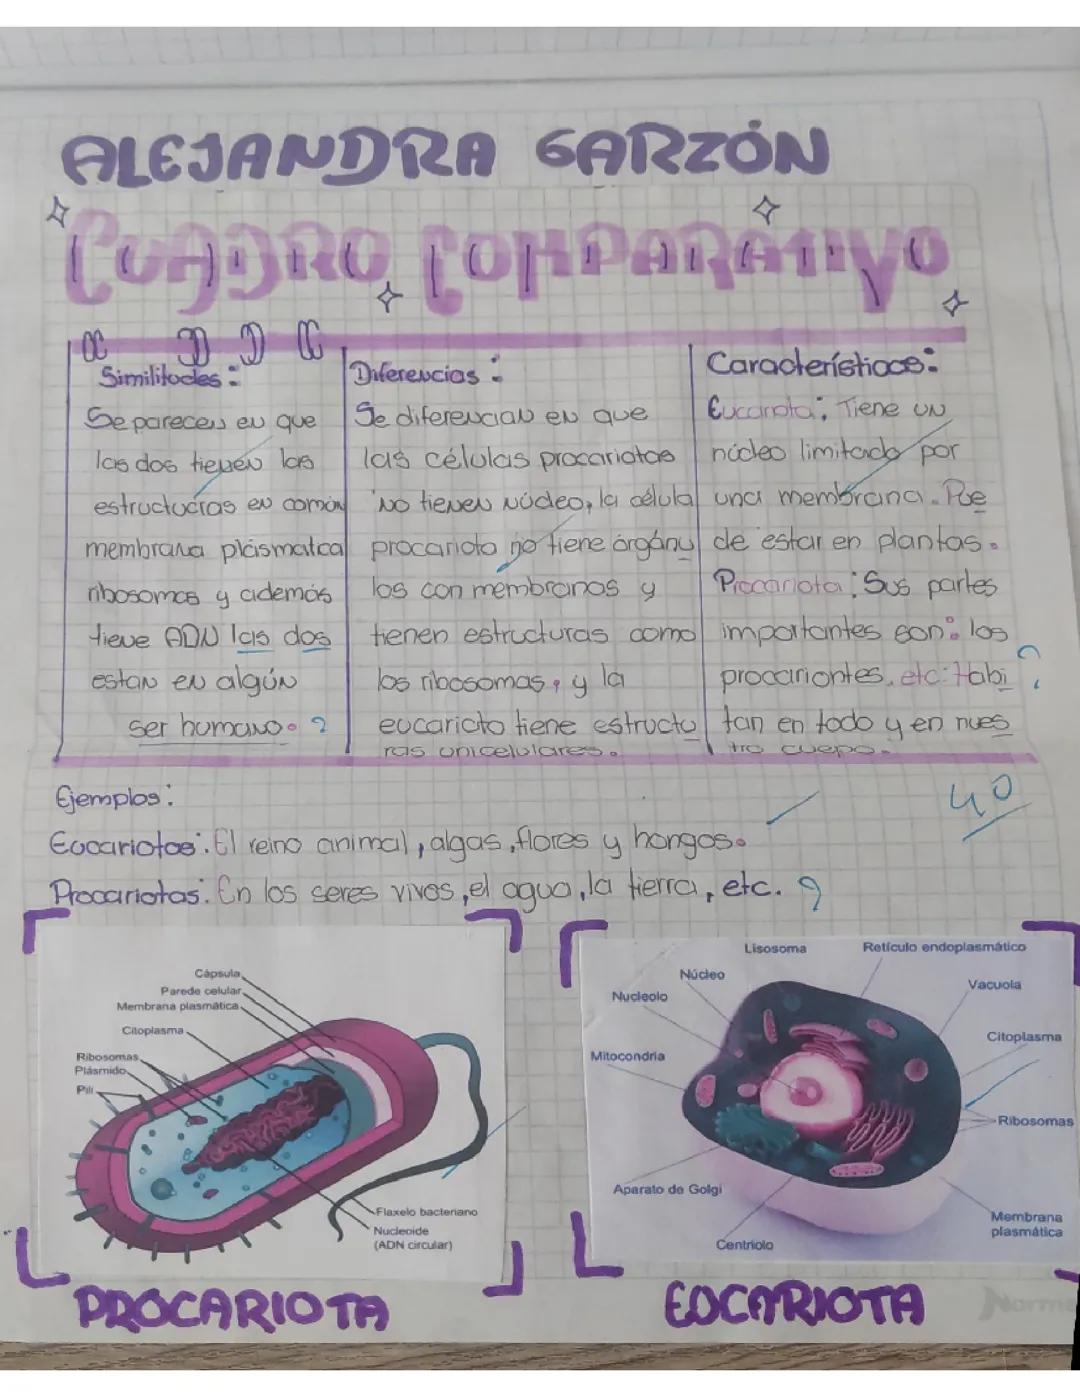 ALEJANDRA GARZÓN
CUADRO COMPARATIVO
Similitudes:
Se parecen en que
las dos tienen las
estructuras en común
membrana plásmatca
ribosomas y además
tiene ADN las dos
estan en algún
ser humano. ?
Diferencias:
Se diferencian en que
las células procariotas
no tienen núcleo, la célula
procariota no tiene órganu
los con membranas y
tienen estructuras como
los ribosomas, y la
eucariota tiene estructu
ras unicelulares.
Características:
Eucariota: Tiene un
núcleo limitado por
una membrana. Pue
de estar en plantas.
Procariota: Sus partes
importantes son: los
procariontes, etc: Habi ?
tan en todo y en nues
tro cuepo.
Ejemplos:
40
Eucariotas: El reino animal, algas, flores y hongos.
Procariotas: En los seres vivos, el agua, la tierra, etc. ?
Cápsula
Parede celular
Membrana plasmática
Citoplasma
Ribosomas
Plásmido
Pili
Flaxelo bacteriano
Nucleoide
(ADN circular)
PROCARIOTA
Lisosoma
Retículo endoplasmático
Núcleo
Vacuola
Nucleolo
Citoplasma
Mitocondria
Ribosomas
Aparato de Golgi
Membrana
plasmática
Centriolo
EUCARIOTA
Norma